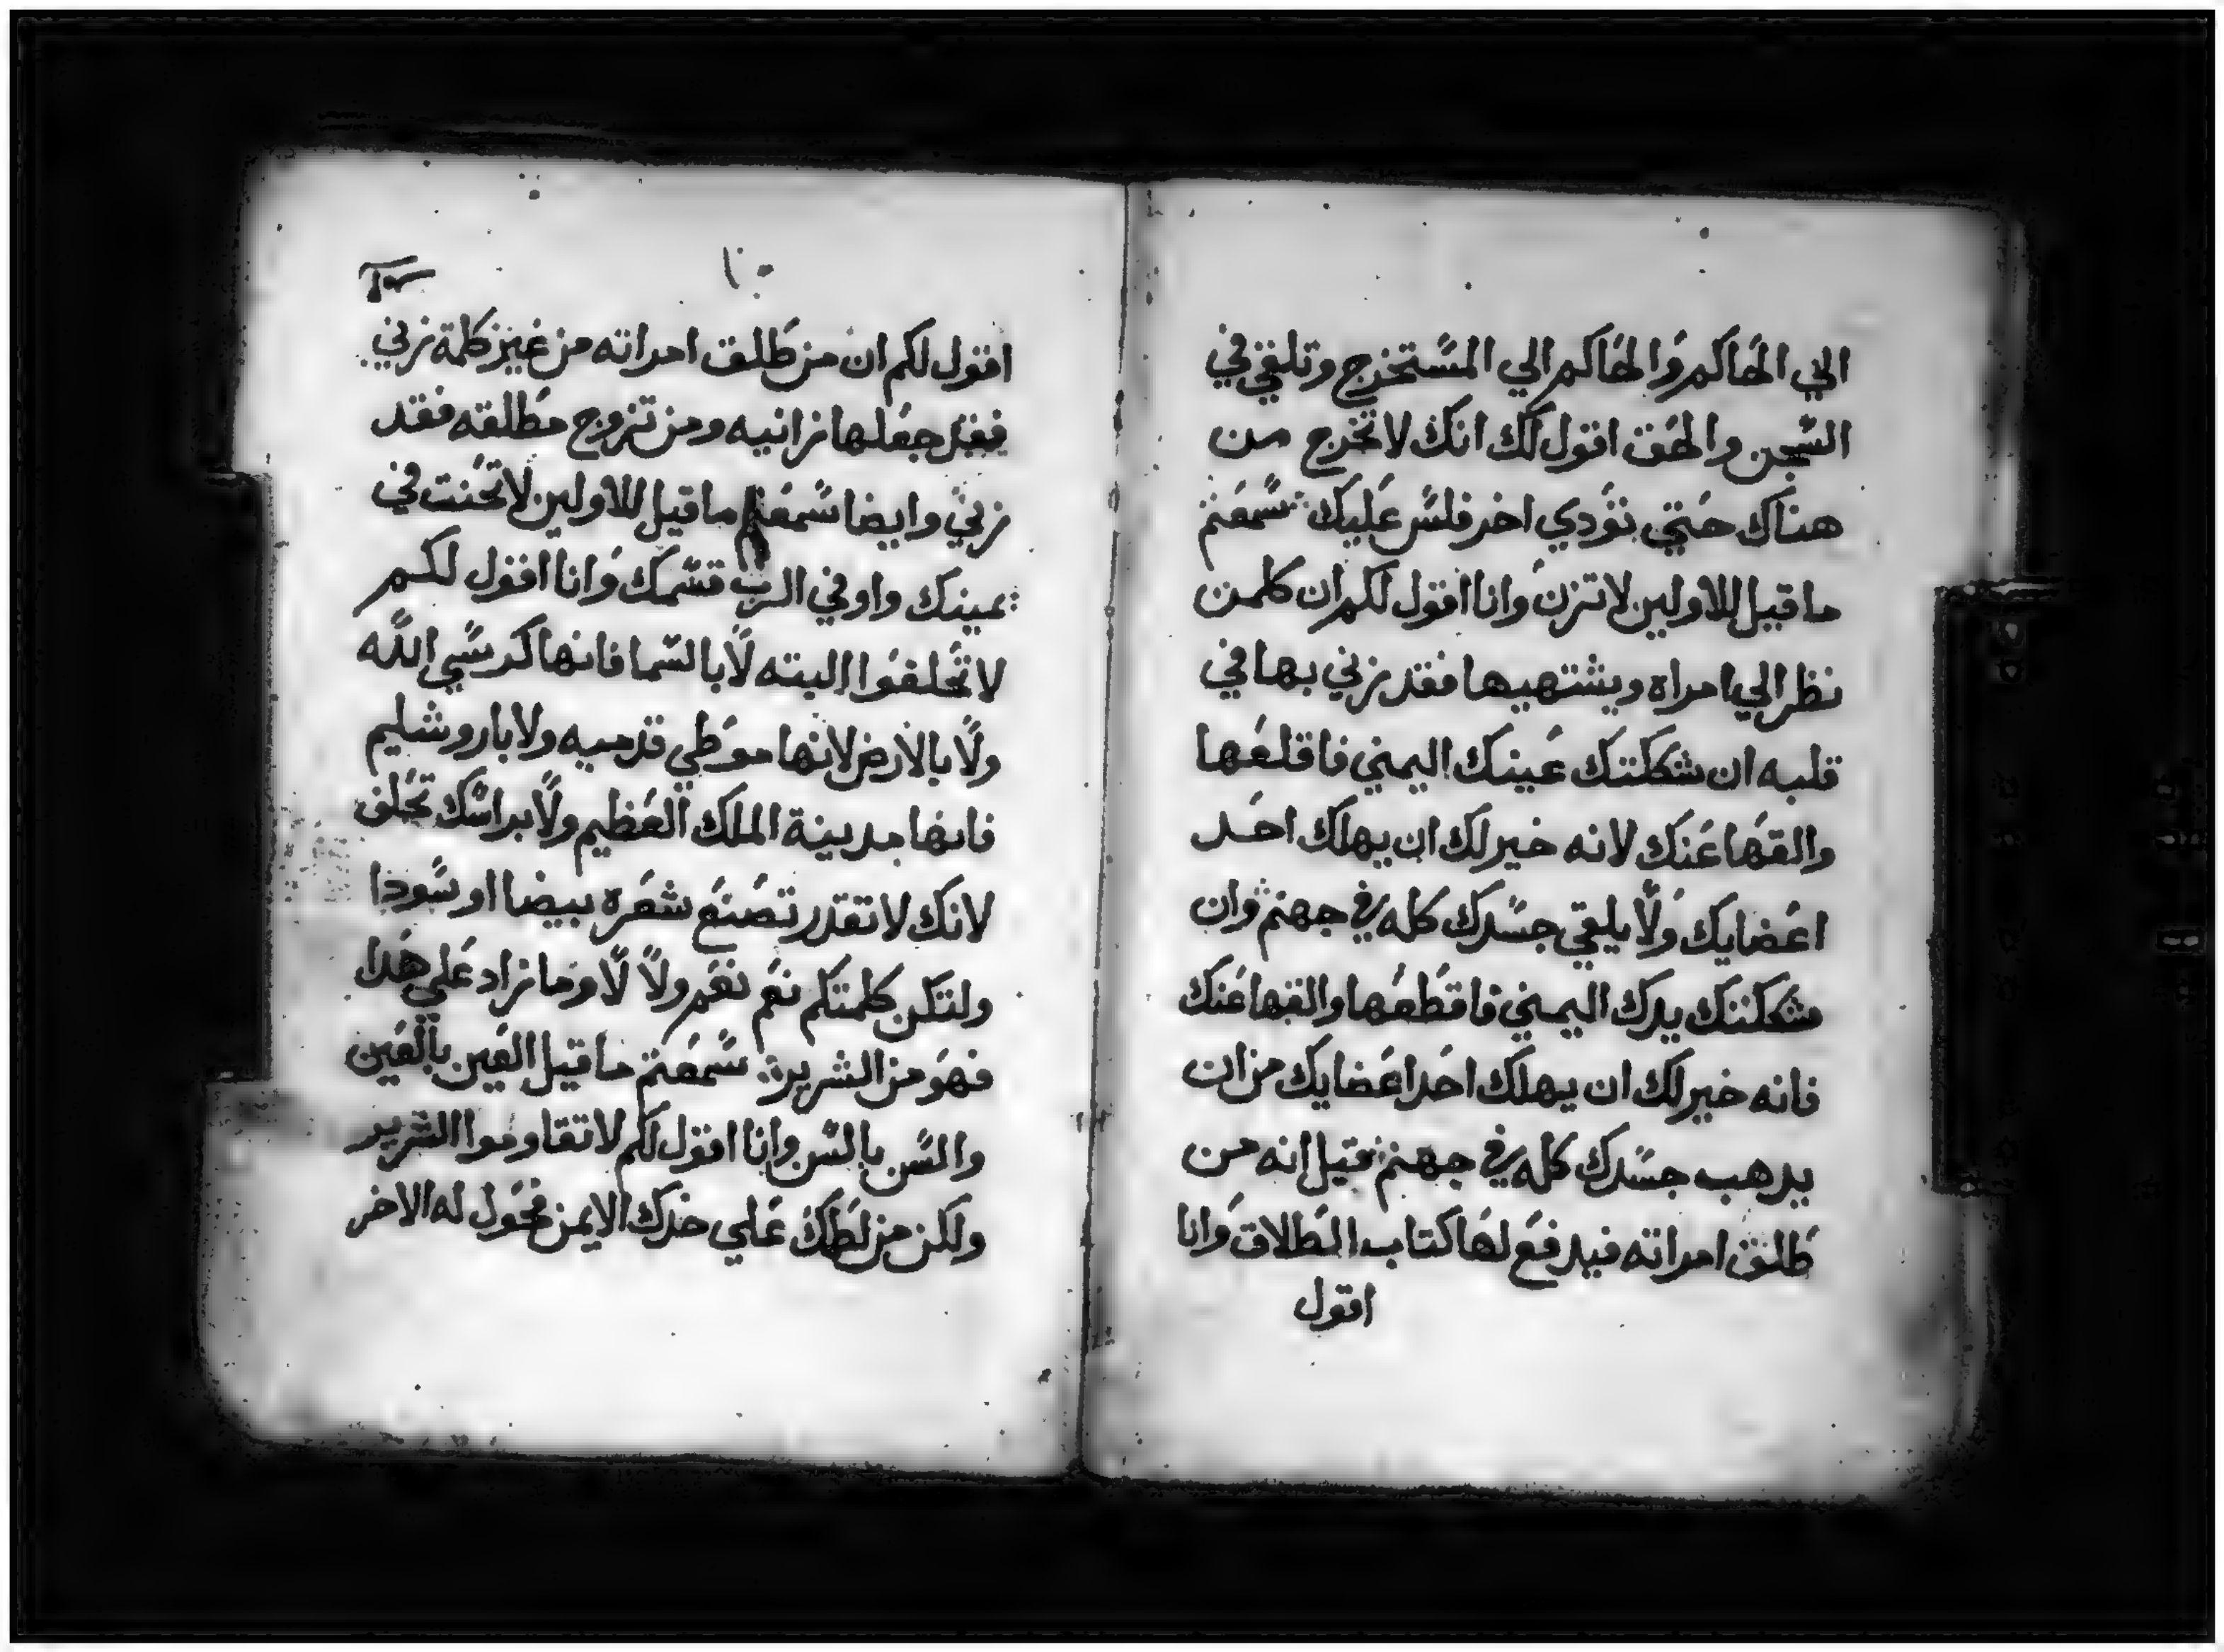 الي الحاكم والحاكم الي المستخرج وتلقي في
السجن والحق اقول لك انك لا تخرج من
هناك حتي تؤدي اخر فلس عليك سمعتم
ما قيل للاولين لا تزن وانا اقول لكم ان كلمن
نظر الي امراه ويشتهيها فقد زني بها في
قلبه ان شككتك عينك اليمني فاقلعها
والقها عنك لانه خير لك ان يهلك احد
اعضايك ولا يلقي جسدك كله في جهنم وان
شككتك يدك اليمني فاقطعها والقها عنك
فانه خير لك ان يهلك احد اعضايك من ان
يدهب جسدك كله في جهنم قيل انه من
طلق امراته فيدفع لها كتاب الطلاق وانا
اقول
١٠
اقول لكم ان من طلق امراته من غير كلمة زني
فقد جعلها زانيه ومن تزوج مطلقه فقد
زني وايضا سمعتم ما قيل للاولين لا تحنت في
يمينك واوفي الرب قسمك وانا اقول لكم
لا تحلفوا البته لا بالسما فانها كرسي الله
ولا بالارض لانها موطي قدميه ولا باروشليم
فانها مدينة الملك العظيم ولا براسك تحلف
لانك لا تقدر تصنع شعره بيضا او سودا
ولتكن كلمتكم نعم نعم ولا لا وما زاد علي هدا
فهو من الشرير سمعتم ما قيل العين بالعين
والسن بالسن وانا اقول لكم لا تقاوموا الشرير
ولكن من لطمك علي خدك الايمن فحول له الاخر